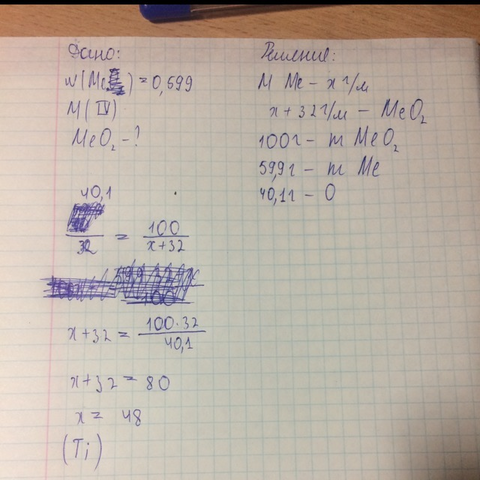 Дано:
w(Me) = 0,599
M(IV)
MeO₂ - ?
Решение:
M Me – x г/м
x + 32 г/м – MeO₂
100 г – m MeO₂
59,9 г – m Me
40,1 г – O
40,1
32 = 100
x + 32
x + 32 = 100·32
40,1
x + 32 = 80
x = 48
(Ti)